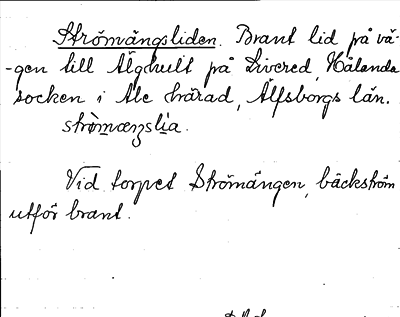 Strömängsliden. Brant lid på vä-
-gen till Älghult på Livered, Hålanda
socken i Ale härad, Älfsborgs län.
strömæŋslia.
Vid torpet Strömängen, bäckström
utför brant.